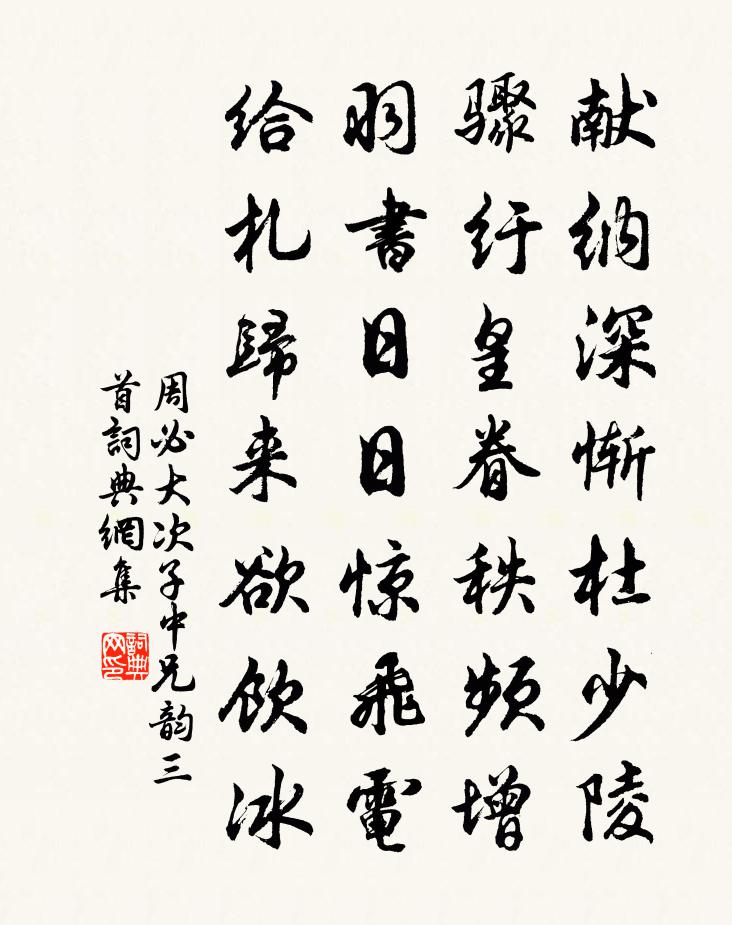 献纳深惭杜少陵
骤纡皇眷秩频增
羽書日日惊飛電
给札歸来欲飲冰
周必大次子中兄韵三
首詞典網集
詞典
网印